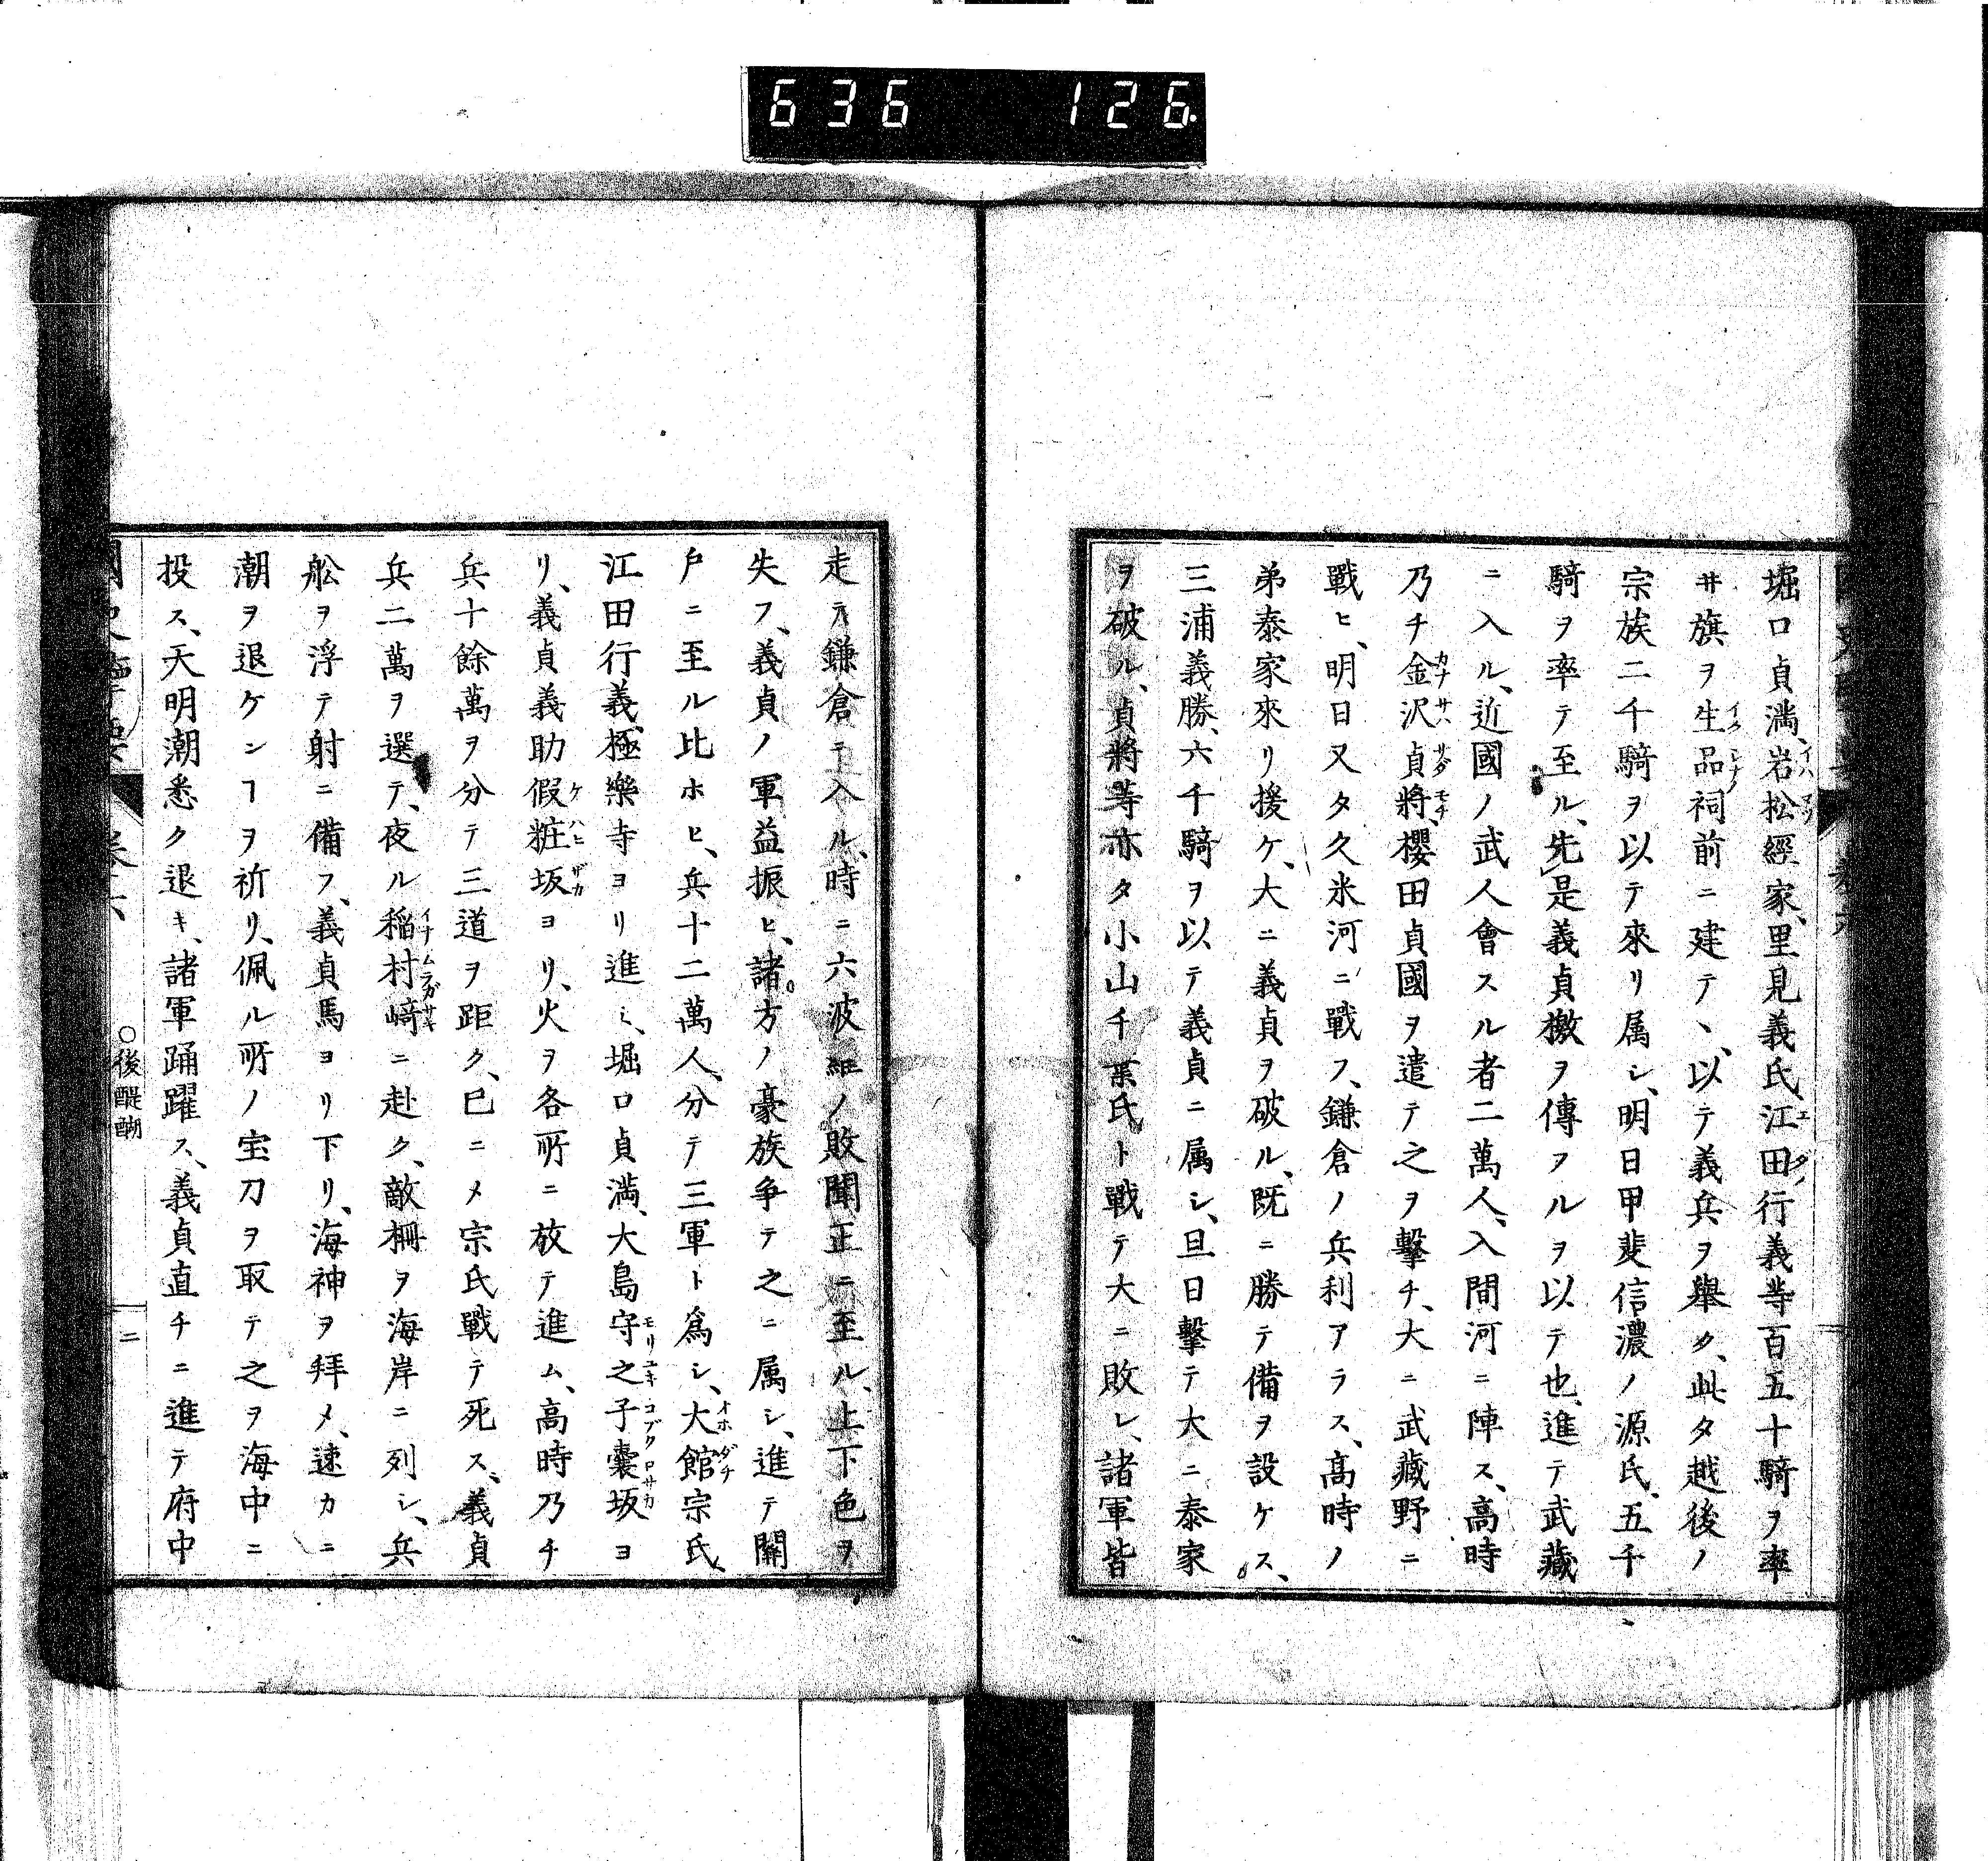 636 126
堀口貞満、岩松經家、里見義氏、江田行義等百五十騎ヲ率
井旗ヲ生品祠前ニ建テヽ、以テ義兵ヲ舉ク、此タ越後ノ
宗族二千騎ヲ以テ來リ属シ、明日甲斐信濃ノ源氏、五千
騎ヲ率テ至ル、先是義貞檄ヲ傳フルヲ以テ也、進テ武藏
ニ入ル、近國ノ武人會スル者二萬人、入間河ニ陣ス、高時
乃チ金沢貞將、櫻田貞國ヲ遣テ之ヲ擊チ、大ニ武藏野ニ
戰ヒ、明日又タ久米河ニ戰フ、鎌倉ノ兵利アラス、高時ノ
弟泰家來リ援ケ、大ニ義貞ヲ破ル、既ニ勝テ備ヲ設ケス、
三浦義勝、六千騎ヲ以テ義貞ニ属シ、旦日擊テ大ニ泰家
ヲ破ル、貞將等亦タ小山千葉氏ト戰テ大ニ敗レ、諸軍皆
走テ鎌倉ニ入ル、時ニ六波羅ノ敗聞正ニ至ル、上下色ヲ
失フ、義貞ノ軍益振ヒ、諸方ノ豪族争テ之ニ属シ、進テ關
戸ニ至ル比ホヒ、兵十二萬人、分テ三軍ト爲シ、大館宗氏、
江田行義、極樂寺ヨリ進ミ、堀口貞満、大島守之子囊坂ヨ
リ、義貞義助假粧坂ヨリ、火ヲ各所ニ放テ進ム、高時乃チ
兵十餘萬ヲ分テ三道ヲ距ク、巳ニメ宗氏戰テ死ス、義貞
兵二萬ヲ選テ、夜ル稲村﨑ニ赴ク、敵柵ヲ海岸ニ列シ、兵
舩ヲ浮テ射ニ備フ、義貞馬ヨリ下リ、海神ヲ拜メ、速カニ
潮ヲ退ケンヿヲ祈リ、佩ル所ノ宝刀ヲ取テ之ヲ海中ニ
投ス、天明潮悉ク退キ、諸軍踊躍ス、義貞直チニ進テ府中
○後醍醐 二